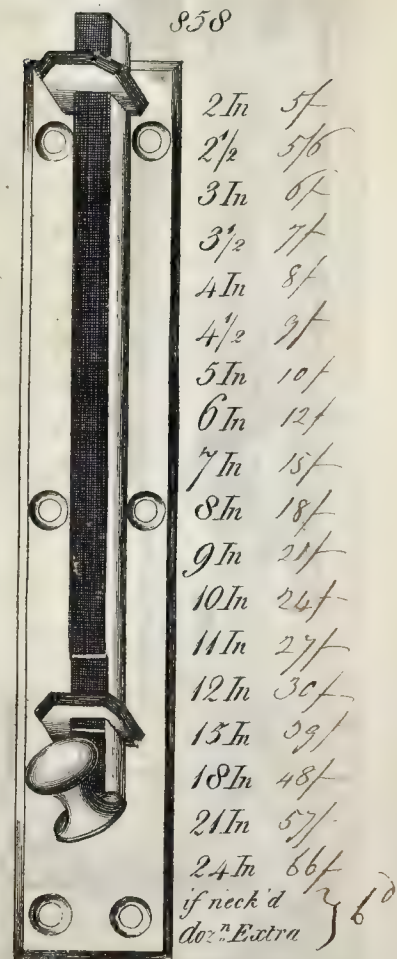 858
2 In 5/-
2 1/2 5/6
3 In 6/-
3 1/2 7/-
4 In 8/-
4 1/2 9/-
5 In 10/-
6 In 12/-
7 In 15/-
8 In 18/-
9 In 21/-
10 In 24/-
11 In 27/-
12 In 30/-
15 In 39/-
18 In 48/-
21 In 57/-
24 In 66/-
if neck'd
doz.n Extra } 6d